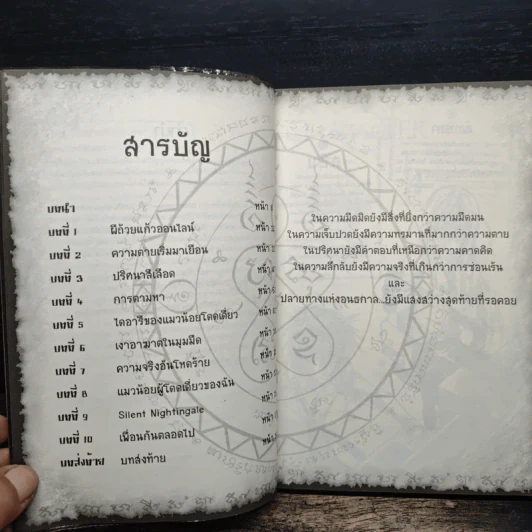 สารบัญ
บทนำ หน้า
บทที่ 1 ผีถ้วยแก้วออนไลน์ หน้า
บทที่ 2 ความตายเริ่มมาเยือน หน้า
บทที่ 3 ปริศนาสีเลือด หน้า
บทที่ 4 การตามหา หน้า
บทที่ 5 ไดอารี่ของแมวน้อยโดดเดี่ยว หน้า
บทที่ 6 เงาอาฆาตในมุมมืด หน้า
บทที่ 7 ความจริงอันโหดร้าย หน้า
บทที่ 8 แมวน้อยผู้โดดเดี่ยวของฉัน หน้า
บทที่ 9 Silent Nightingale หน้า
บทที่ 10 เพื่อนกันตลอดไป หน้า
บทส่งท้าย บทส่งท้าย
ในความมืดมิดยังมีสิ่งที่ยิ่งกว่าความมืดมน
ในความเจ็บปวดยังมีความทรมานที่มากกว่าความตาย
ในปริศนายังมีคำตอบที่เหนือกว่าความคาดคิด
ในความลึกลับยังมีความจริงที่เกินกว่าการซ่อนเร้น
และ
ปลายทางแห่งอนธกาล...ยังมีแสงสว่างสุดท้ายที่รอคอย